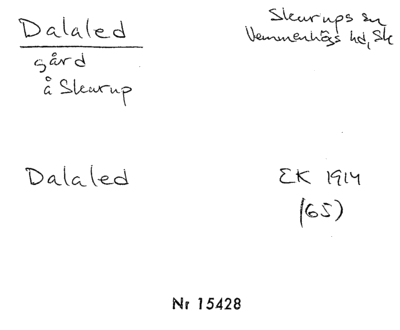 Dalaled
Skurups sn
Vemmenhögs hd, Sk
gård
å Skurup
Dalaled
EK 1914
(65)
Nr 15428